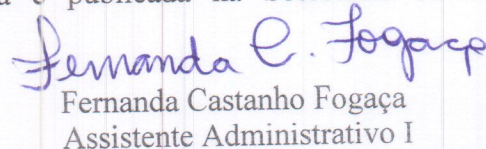 e publicada na
Fernanda C. Fogaça
Fernanda Castanho Fogaça
Assistente Administrativo I